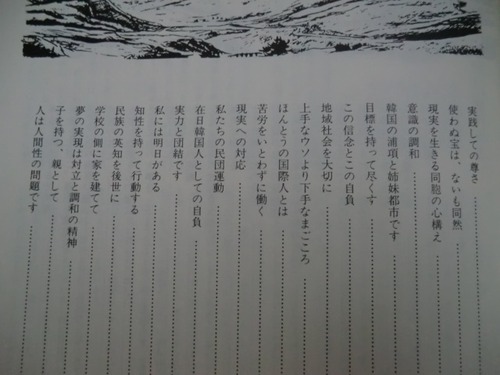 実践しての尊さ
使わぬ宝は、ないも同然
現実を生きる同胞の心構え
意識の調和
韓国の浦項と姉妹都市です
目標を持って尽くす
この信念とこの自負
地域社会を大切に
上手なウソより下手なまごころ
ほんとうの国際人とは
苦労をいとわずに働く
現実への対応
私たちの民団運動
在日韓国人としての自負
実力と団結です
私には明日がある
知性を持って行動する
民族の英知を後世に
学校の側に家を建てて
夢の実現は対立と調和の精神
子を持つ、親として
人は人間性の問題です